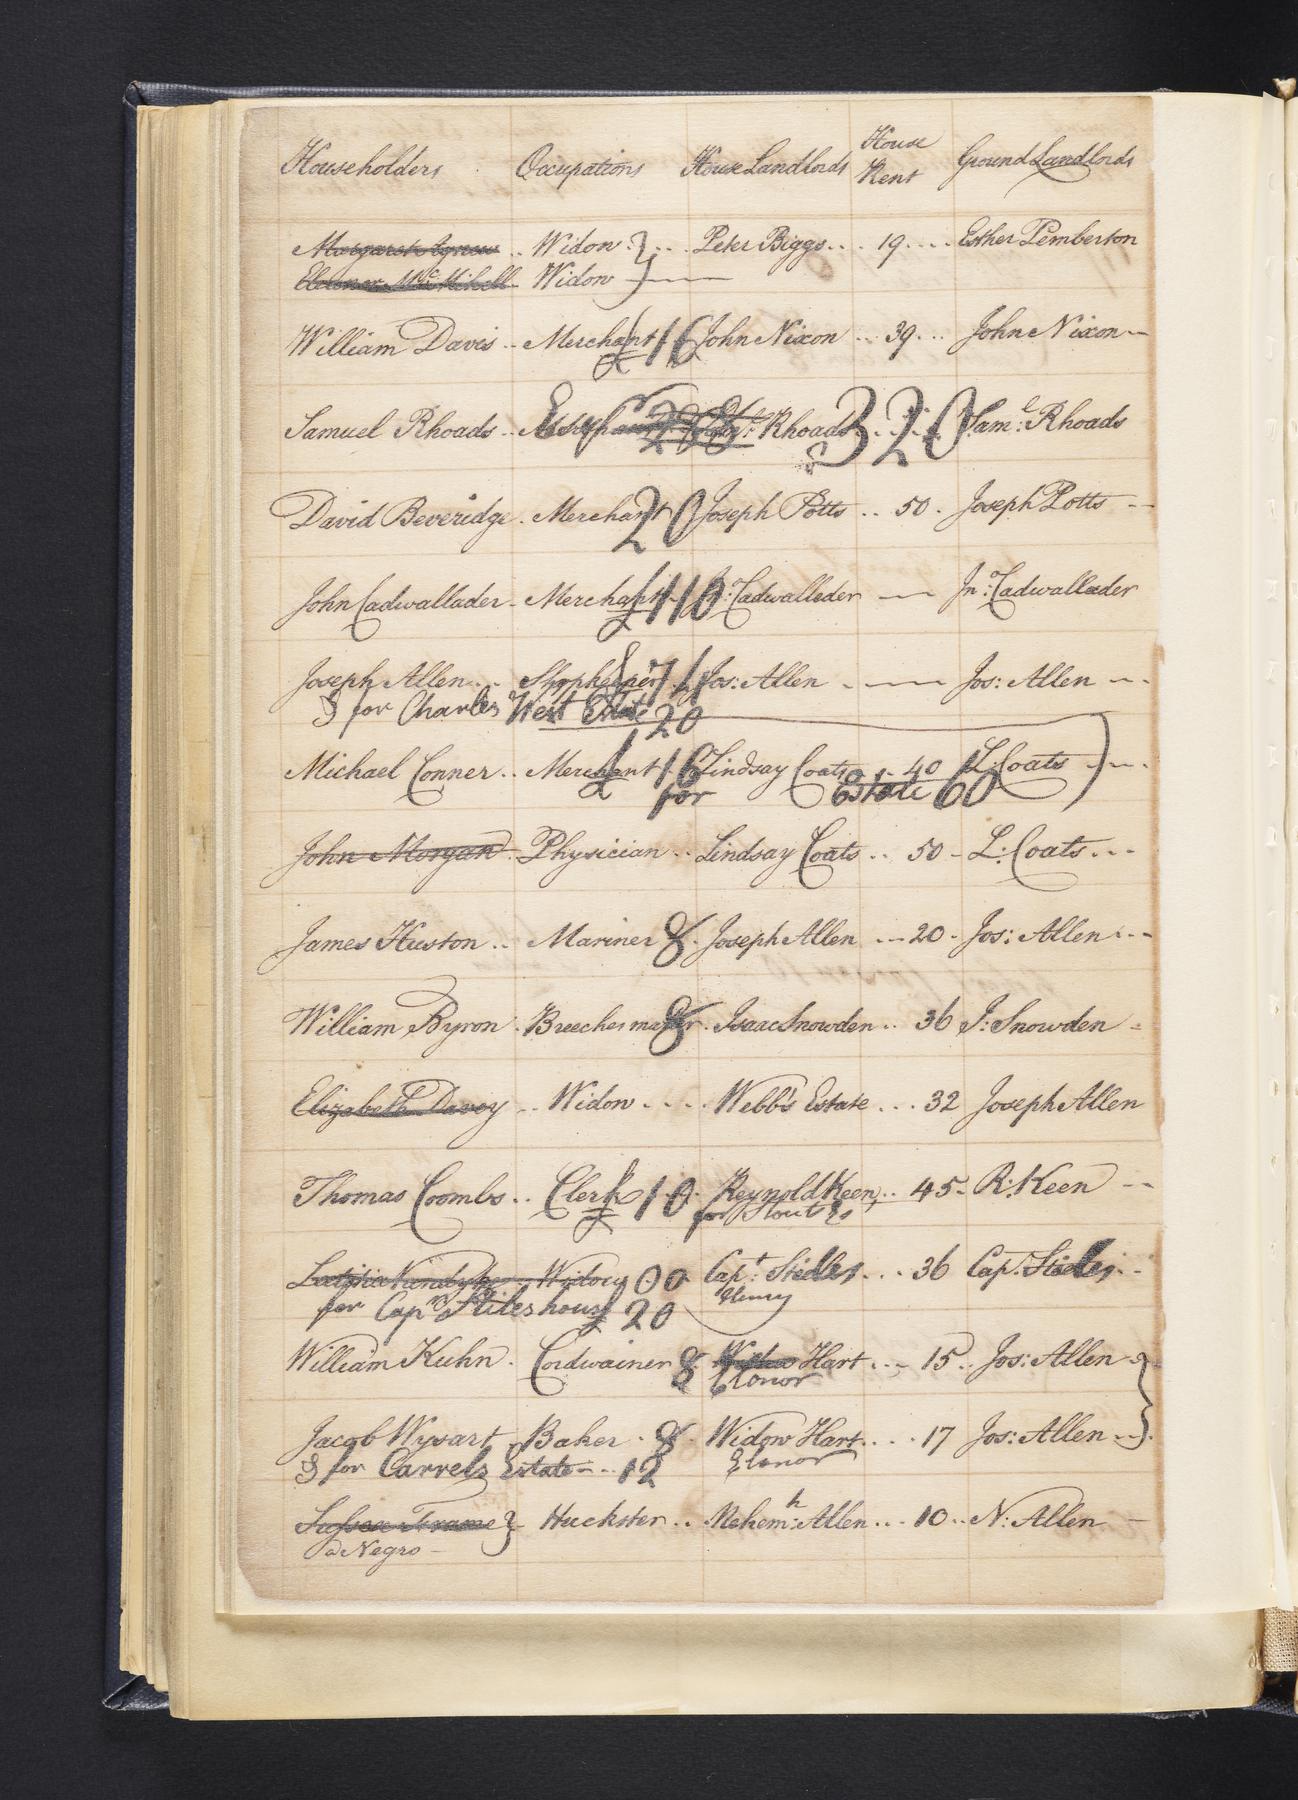 Householders Occupations House Landlords House Rent Ground Landlords
Margaret Agnew .. Widow } .. Peter Biggs .. 19 .... Esther Pemberton
Eleonor McMikell Widow }
William Davis .. Merchant £16 John Nixon .. 39 ... John Nixon
Samuel Rhoads .. Esqr Rhoads £320 Saml: Rhoads
David Beveridge . Merchant 20 Joseph Potts .. 50 . Joseph Potts
John Cadwallader - Merchant £110 Jn: Cadwallader — Jn: Cadwallader
Joseph Allen ... Shopkeeper £71 Jos: Allen . — Jos: Allen
& for Charles West Estate 20
Michael Conner .. Merchant £16 Lindsay Coats .. 40 L: Coats
for Estate 60
John Morgan . Physician .. Lindsay Coats .. 50 - L: Coats ...
James Huston .. Mariner 8 . Joseph Allen ... 20 - Jos: Allen
William Byron . Breeches maker 8 . Isaac Snowden .. 36 I: Snowden
Elizabeth Davey .. Widow .... Webb's Estate ... 32 Joseph Allen
Thomas Coombs .. Clerk £10 . Reynold Keen .. 45 - R: Keen
for Stouts Es
Widow 00 Capt: Stiles ... 36 Cap: Stiles
for Capn Stiles house 20 Henry
William Kuhn . Cordwainer 8 Widow Hart ... 15 .. Jos: Allen }
Elonor
Jacob Wysart - Baker . 8 . Widow Hart .... 17 Jos: Allen }
& for Carrels Estate ... 12 Elonor
Frame } Huckster .. Nehemh: Allen ... 10 .. N: Allen
a Negro